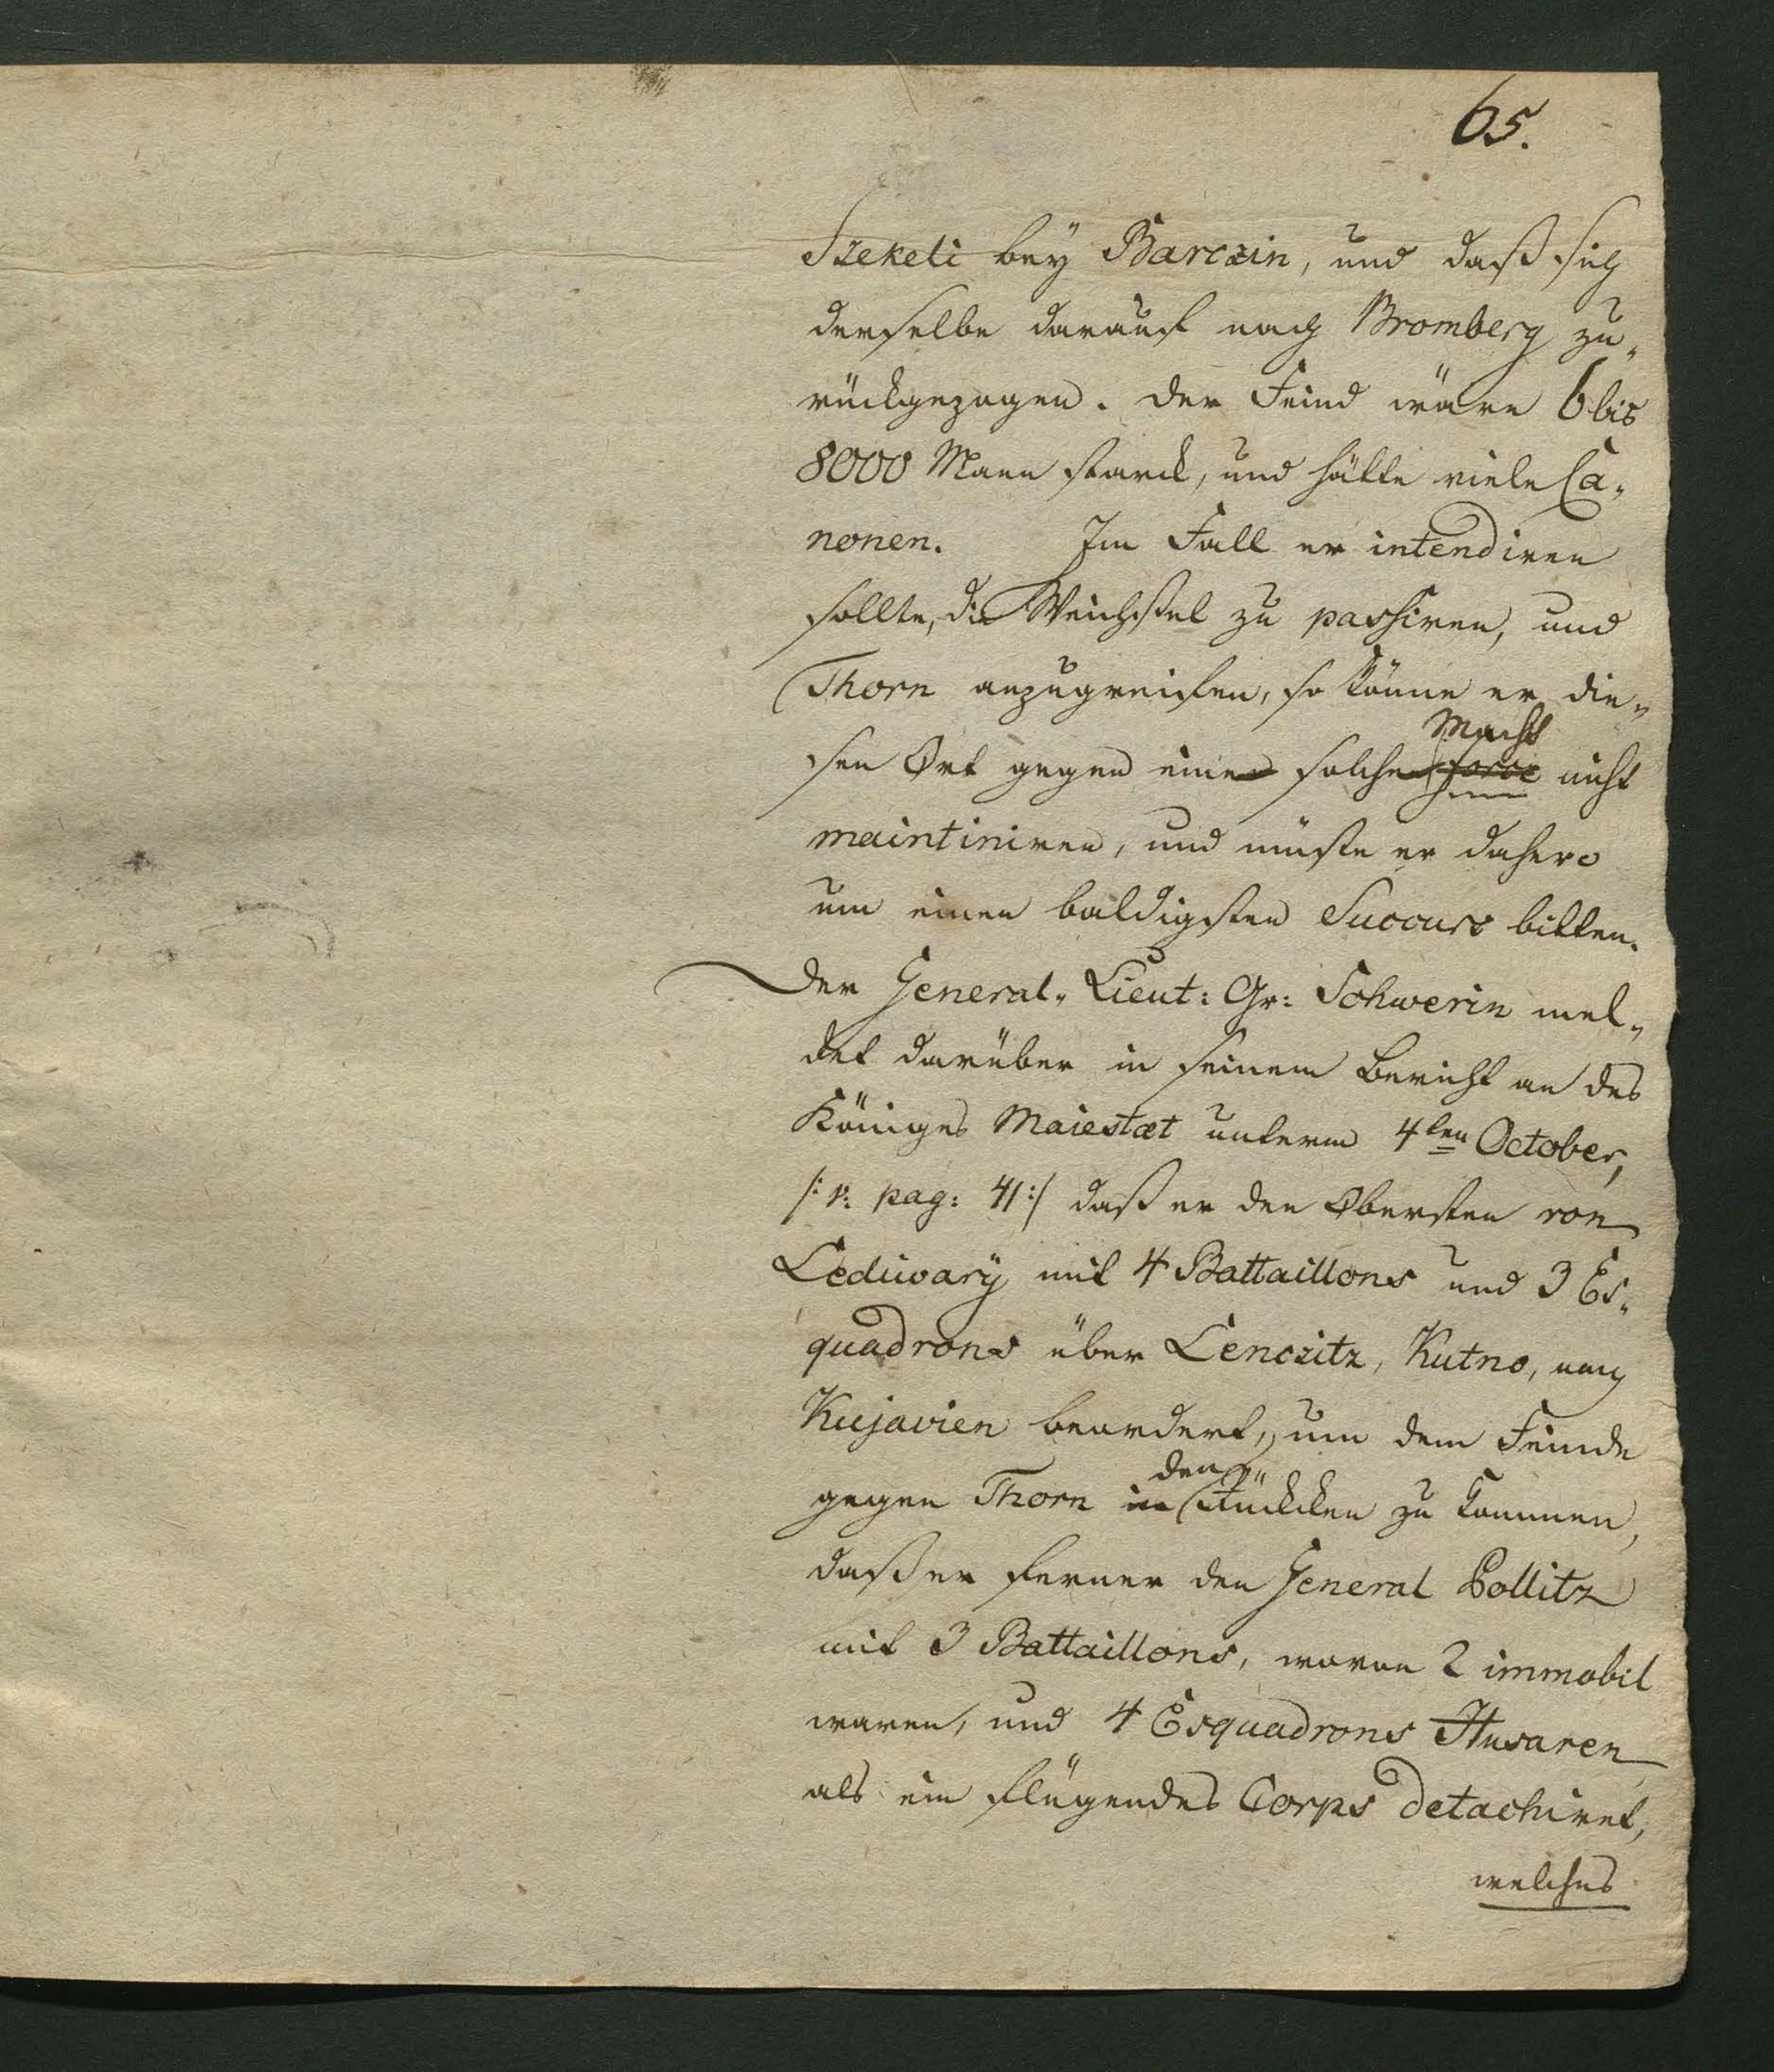 65.
Szekeli bey Barczin, und daß sich
derselbe darauf nach Bromberg zu„
rückgezogen. Der Feind wäre 6 bis
8000 Mann starck, und hätte viele Ca„
nonen. Im Fall er intendiren
sollte, die Weichssel zu passiren, und
Thorn anzugreifen, so könne er die„
Macht
sen Ort gegen eine solche force nicht
maintiniren, und müste er dahero
um einen baldigsten Succurs bitten.
Der General„ Lieut: Gr: Schwerin mel„
det darüber in seinem Bericht an des
Königes Maiestæt unterm 4ten October,
/: v: pag: 41 :/ daß er den Obersten von
Lediwary mit 4 Battaillons und 3 Es„
quadrons über Lenczitz, Kutno, nach
Kujavien beordert, um dem Feinde
den
gegen Thorn in Rückken zu kommen,
daß er ferner den General Pollitz
mit 3 Battaillons, wovon 2 immobil
waren, und 4 Esquadrons Husaren
als ein fliegendes Corps detachiret,
welches